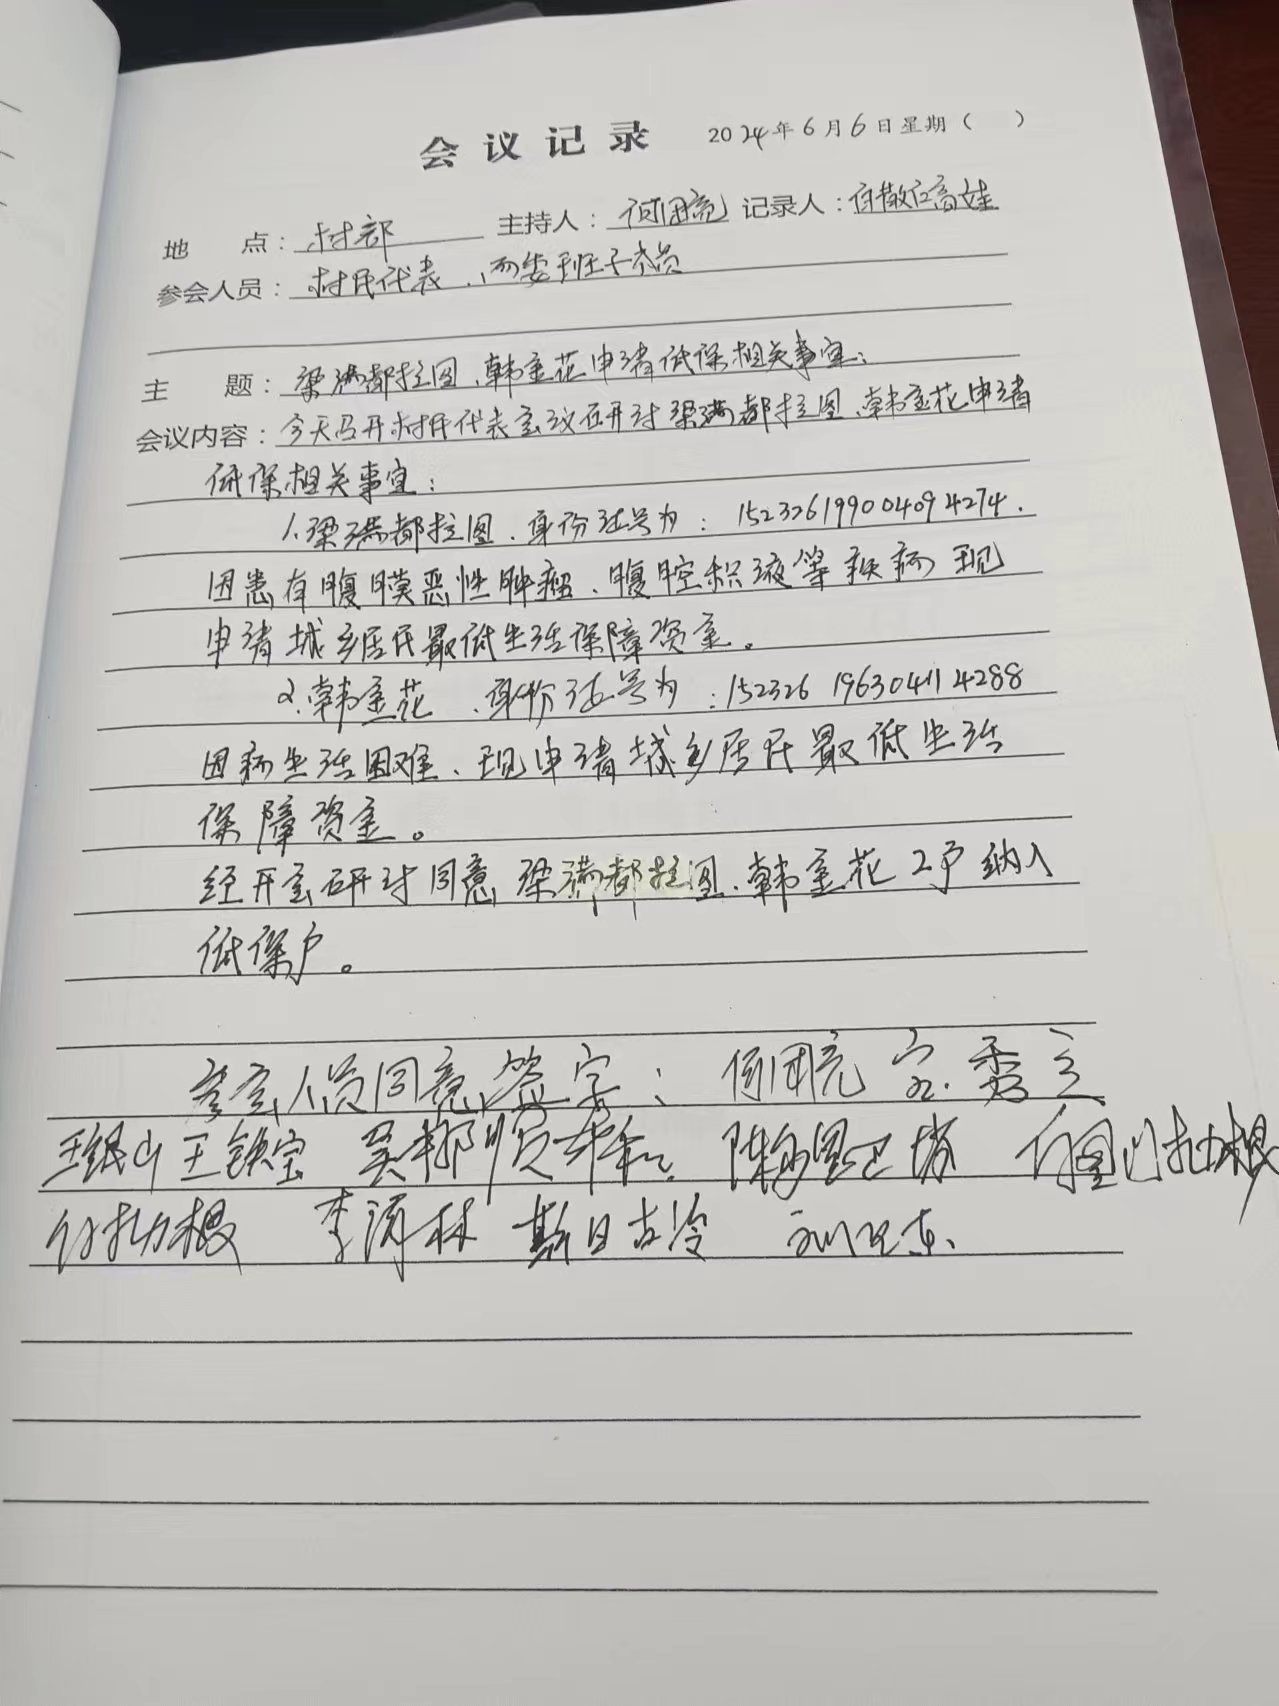 会议记录 2024年6月6日星期( )
地 点: 村部 主持人: 何团亮 记录人: 高娃
参会人员: 村民代表、两委班子成员
主 题: 梁满都拉图、韩金花申请低保相关事宜:
会议内容: 今天召开村民代表会议研讨梁满都拉图、韩金花申请
低保相关事宜:
1.梁满都拉图、身份证号为:152326199004094274.
因患有腹膜恶性肿瘤、腹腔积液等疾病现
申请城乡居民最低生活保障资金。
2.韩金花、身份证号为:152326196304114288
因病生活困难、现申请城乡居民最低生活
保障资金。
经开会研讨同意梁满都拉图、韩金花2户纳入
低保户。
参会人员同意签字: 何团亮
王银山 王铁宝
李海林 斯日古冷